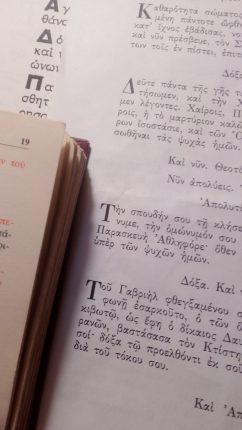 Ἁγ
θάνο
Δό
καὶ ν
ώνων
Πα
σθητ
19
ν τοῦ
Καθαρότητα σώματος
μένη πάντοτε ὠρθή
κατ' ἴχνος ἐβάδισας,
καὶ νῦν πρέσβευε, τὸν Σ
των τοῖς ἐν πίστει,
Δόξα
Δεῦτε πάντα τῆς γῆς τ
τήσωμεν, καὶ τὴν Χ
μεν λέγοντες. Χαίροις, Π
ροις, ἡ τὸ μαρτύριον
ρων ἰσοστάσιε, καὶ τῶν
σωθῆναι τὰς ψυχὰς ἡμῶν.
Καὶ νῦν. Θεοτο
Νῦν ἀπολύεις.
Ἀπολυτί
Τὴν σπουδήν σου τῇ κλήσει
νυμε, τὴν ὁμώνυμόν σου
Παρασκευὴ Ἀθληφόρε· ὅθεν
ὑπὲρ τῶν ψυχῶν ἡμῶν.
Δόξα. Καὶ ν
Τοῦ Γαβριὴλ φθεγξαμένου σ
φωνῇ ἐσαρκοῦτο, ὁ τῶν ὅ
κιβωτῷ, ὡς ἔφη ὁ δίκαιος Δαυ
ρανῶν, βαστάσασα τὸν Κτίστη
σοί· δόξα τῷ προελθόντι ἐκ σοῦ
διὰ τοῦ τόκου σου.
Καὶ Ἀπ